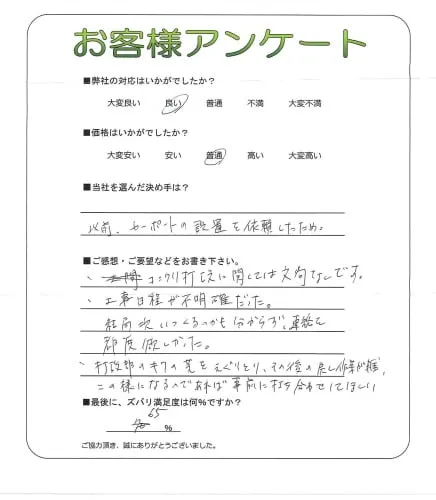 お客様アンケート
■弊社の対応はいかがでしたか？
大変良い 良い 普通 不満 大変不満
■価格はいかがでしたか？
大変安い 安い 普通 高い 大変高い
■当社を選んだ決め手は？
以前、カーポートの設置を依頼したため。
■ご感想・ご要望などをお書き下さい。
・コンクリ打設に関しては文句なしです。
・工事日程が不明確だった。
結局次いつくるのかも分からず、連絡を
都度欲しかった。
・打設部のキワの芝をえぐりとり、その後の戻し作業が雑、
この様になるのであれば事前に打ち合わせしてほしい
■最後に、ズバリ満足度は何%ですか？
65
%
ご協力頂き、誠にありがとうございました。